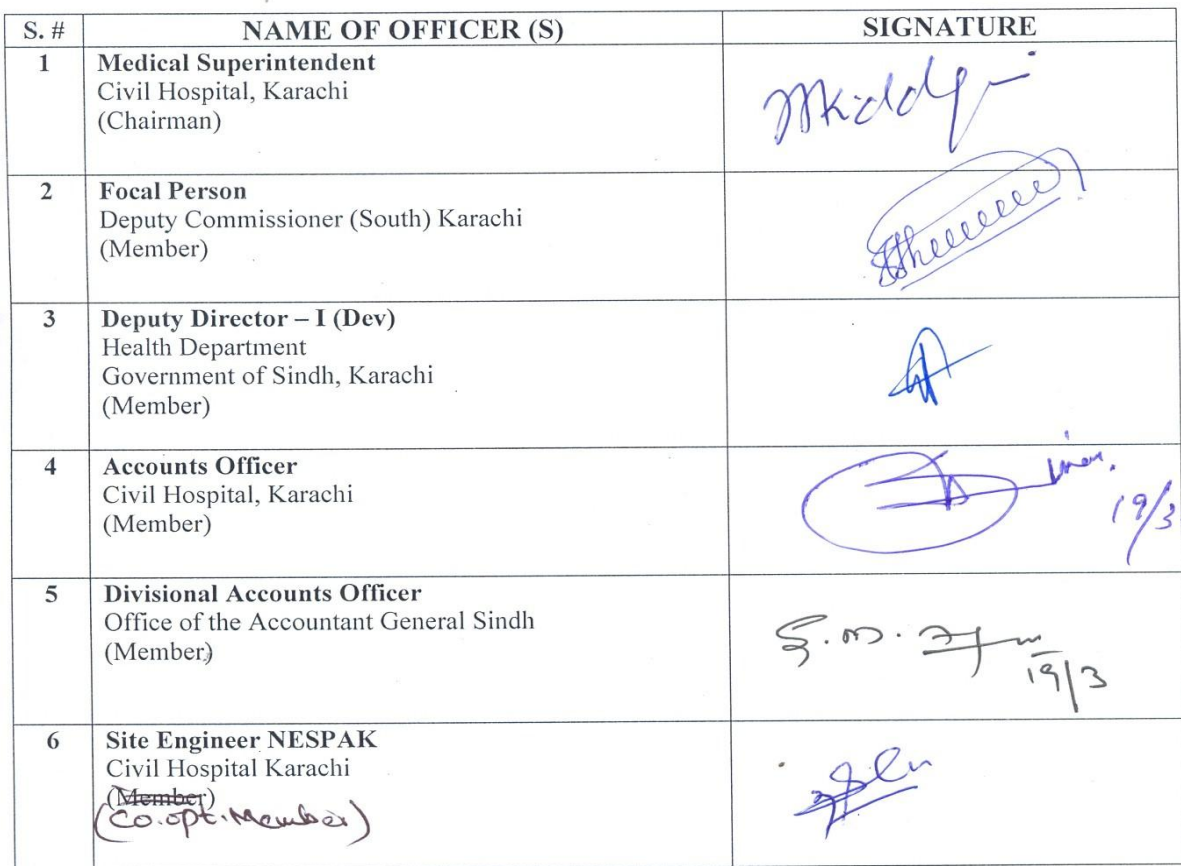 S. # NAME OF OFFICER (S) SIGNATURE
1 Medical Superintendent
Civil Hospital, Karachi
(Chairman)
2 Focal Person
Deputy Commissioner (South) Karachi
(Member)
3 Deputy Director – I (Dev)
Health Department
Government of Sindh, Karachi
(Member)
4 Accounts Officer
Civil Hospital, Karachi
(Member)
19/3
5 Divisional Accounts Officer
Office of the Accountant General Sindh
(Member)
19/3
6 Site Engineer NESPAK
Civil Hospital Karachi
(Member)
(Co.opt.Member)